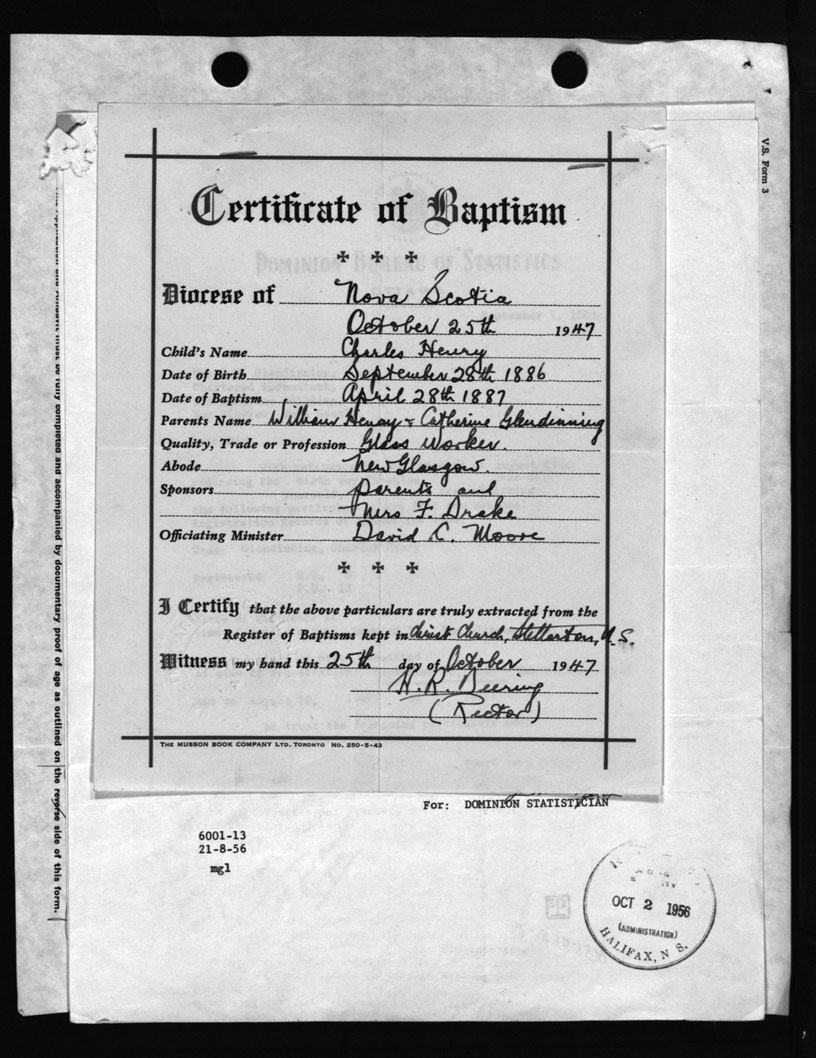 Certificate of Baptism
Diocese of Nova Scotia
October 25th 1947
Child's Name Charles Henry
Date of Birth September 28th 1886
Date of Baptism April 28th 1887
Parents Name William Henry & Catherine Glendinning
Quality, Trade or Profession Glass Worker.
Abode New Glasgow.
Sponsors parents and
Mrs F. Drake
Officiating Minister David C. Moore
I Certify that the above particulars are truly extracted from the
Register of Baptisms kept in Christ Church, Stellarton, N.S.
Witness my hand this 25th day of October 1947
H. R. Deering
(Rector)
THE MUSSON BOOK COMPANY LTD. TORONTO No. 250-5-43
For: DOMINION STATISTICIAN
6001-13
21-8-56
mgl
OCT 2 1956
(ADMINISTRATION)
HALIFAX, N S.
V.S. Form 3
must be fully completed and accompanied by documentary proof of age as outlined on the reverse side of this form.
DOMINION BUREAU OF STATISTICS